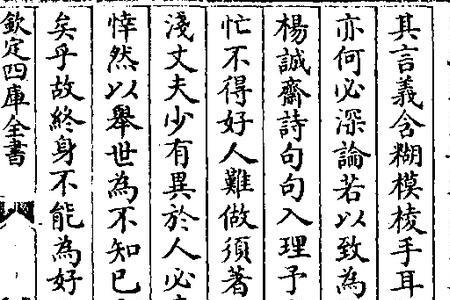 其言義含糊模棱手耳
亦何必深論若以致為
楊誠齋詩句句入理予
忙不得好人難做須著
淺丈夫少有異於人必
悻然以舉世為不知已
矣乎故終身不能為好
欽定四庫全書